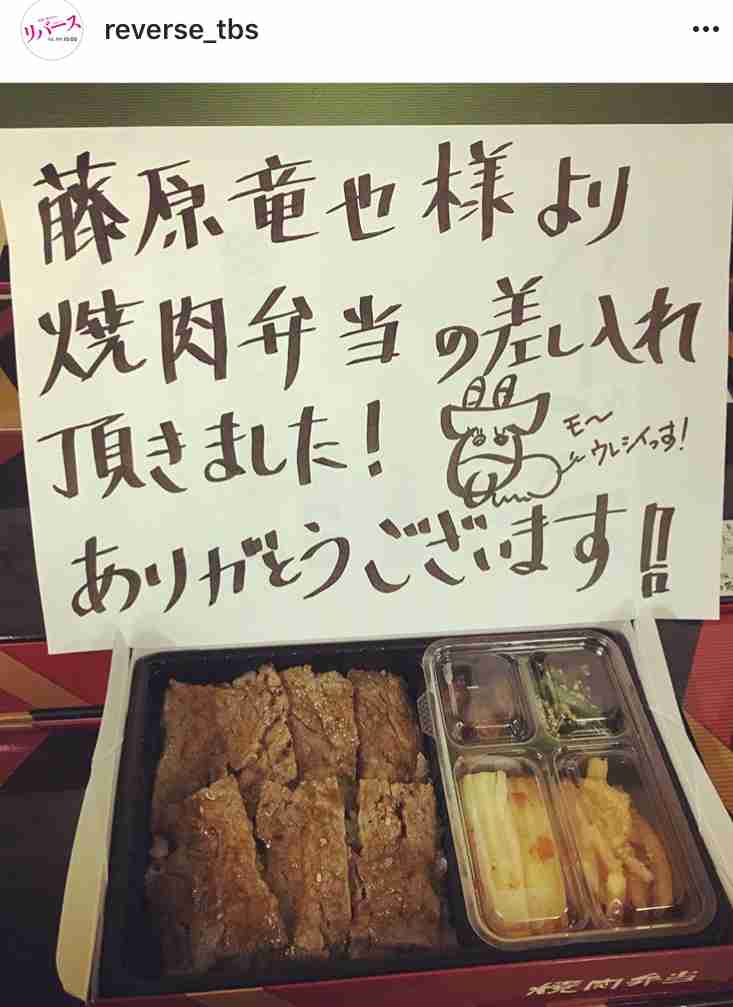 リバース
reverse_tbs
藤原竜也様より
焼肉弁当の差し入れ
頂きました!
モ〜
ウレシイっす!
ありがとうございます!!
焼肉弁当